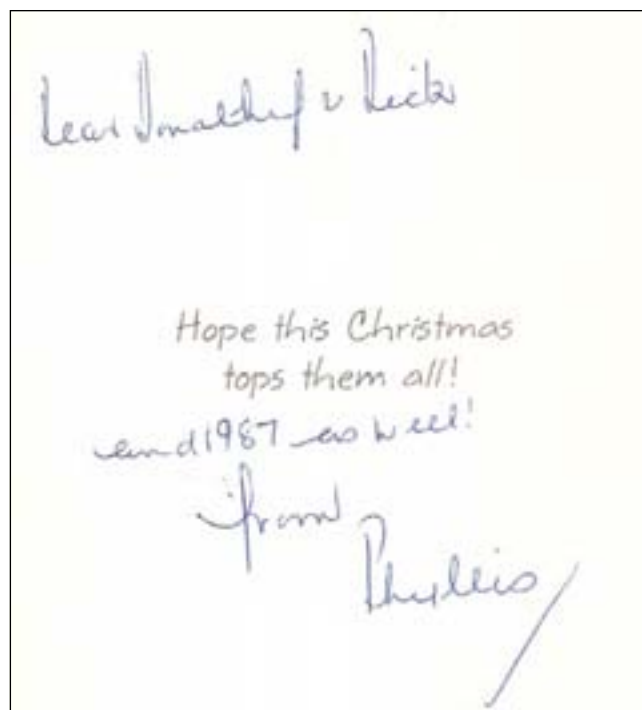 Dear
Hope this Christmas
tops them all!
and 1987 as well!
from
Phyllis